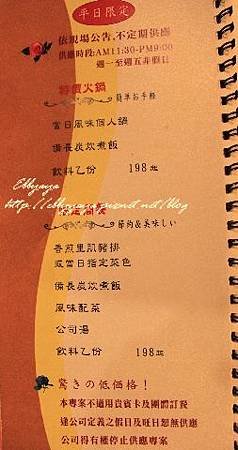 平日限定
依現場公告,不定期供應
供應時段:AM11:30-PM9:00
週一至週五非假日
特價火鍋
簡單お手軽
當日風味個人鍋
備長炭炊煮飯
飲料乙份 198元
Ebbyaya
http://ebbyaya.pixnet.net/blog
節約&美味しい
香煎里肌豬排
或當日指定菜色
備長炭炊煮飯
風味配菜
公司湯
飲料乙份 198元
驚きの低価格!
本專案不適用貴賓卡及團體訂餐
逢公司定義之假日及旺日恕無供應
公司得有權停止供應專案